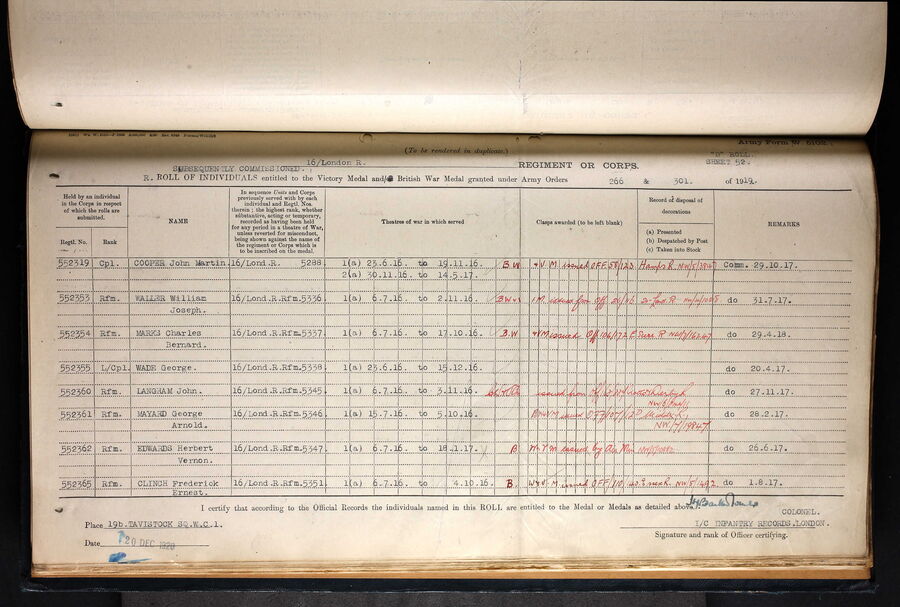 (To be rendered in duplicate.)
Army Form W 5102.
"B" ROLL.
16/London R. REGIMENT OR CORPS. SHEET 52.
SUBSEQUENTLY COMMISSIONED.
R. ROLL OF INDIVIDUALS entitled to the Victory Medal and/or British War Medal granted under Army Orders 266 & 301. of 1919.
Held by an individual in the Corps in respect of which the rolls are submitted.
Regtl. No. Rank
NAME
In sequence Units and Corps previously served with by each individual and Regtl. Nos. therein; the highest rank, whether substantive, acting or temporary, recorded as having been held for any period in a theatre of War, unless reverted for misconduct, being shown against the name of the regiment or Corps which is to be inscribed on the medal.
Theatres of war in which served
Clasps awarded (to be left blank)
Record of disposal of decorations
(a) Presented
(b) Despatched by Post
(c) Taken into Stock
REMARKS
552319 Cpl. COOPER John Martin. 16/Lond.R. 5288 1(a) 23.6.16. to 19.11.16. B W & V M issued OFF Hamps R Comm. 29.10.17.
2(a) 30.11.16. to 14.5.17.
552353 Rfm. WALLER William 16/Lond.R.Rfm.5336 1(a) 6.7.16. to 2.11.16. do 31.7.17.
Joseph.
552354 Rfm. MARKS Charles 16/Lond.R.Rfm.5337 1(a) 6.7.16. to 17.10.16. B.W & V M issued do 29.4.18.
Bernard.
552355 L/Cpl. WADE George. 16/Lond.R.Rfm.5338 1(a) 23.6.16. to 15.12.16. do 20.4.17.
552360 Rfm. LANGHAM John. 16/Lond.R.Rfm.5345 1(a) 6.7.16. to 3.11.16. issued from do 27.11.17.
552361 Rfm. MAYARD George 16/Lond.R.Rfm.5346 1(a) 15.7.16. to 5.10.16. do 28.2.17.
Arnold. NW/7/19847
552362 Rfm. EDWARDS Herbert 16/Lond.R.Rfm.5347 1(a) 6.7.16. to 18.1.17. B W V M issued by Air Min do 26.6.17.
Vernon.
552365 Rfm. CLINCH Frederick 16/Lond.R.Rfm.5351 1(a) 6.7.16. to 4.10.16. B. W & V M issued OFF do 1.8.17.
Ernest.
I certify that according to the Official Records the individuals named in this ROLL are entitled to the Medal or Medals as detailed above.
COLONEL.
Place 19b.TAVISTOCK SQ.W.C.1. I/C INFANTRY RECORDS.LONDON.
Signature and rank of Officer certifying.
Date 20 DEC 1920